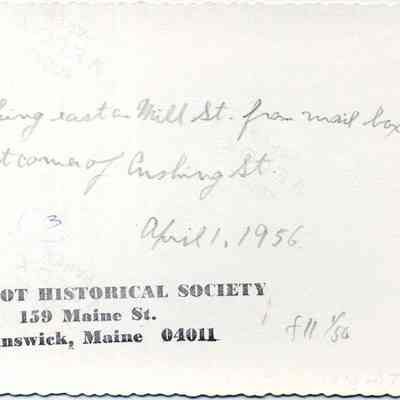 king east on Mill St. from mail box
t corner of Cushing St.
3
April 1, 1956
OT HISTORICAL SOCIETY
159 Maine St.
nswick, Maine 04011
f11 1/50